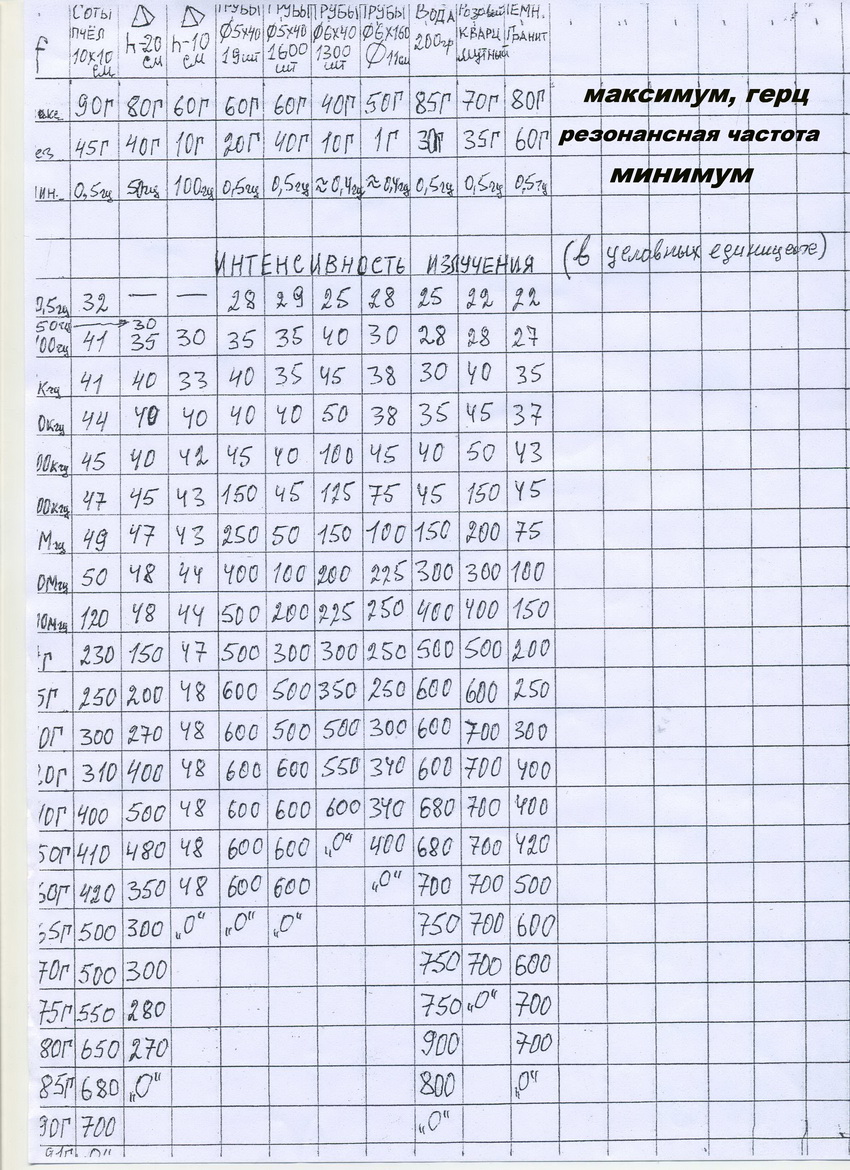 СОТЫ ТРУБЫ ТРУБЫ ТРУБЫ ТРУБЫ ВОДА Розовый ТЕМН.
ПЧЁЛ h-20 h-10 Ø5х40 Ø5х40 Ø6х40 Ø6х160 200гр КВАРЦ Гранит
f 10х10 см см 19шт 1600 1300 Ø11см мутный
см шт шт
90Г 80Г 60Г 60Г 60Г 40Г 50Г 85Г 70Г 80Г максимум, герц
ез 45Г 40Г 10Г 20Г 40Г 10Г 1Г 30Г 35Г 60Г резонансная частота
ин. 0,5гц 50гц 100гц 0,5гц 0,5гц ≈0,4гц ≈0,4гц 0,5гц 0,5гц 0,5гц минимум
ИНТЕНСИВНОСТЬ ИЗЛУЧЕНИЯ (в условных единицах)
0,5гц 32 — — 28 29 25 28 25 22 22
50гц 30
00гц 41 35 30 35 35 40 30 28 28 27
Кгц 41 40 33 40 35 45 38 30 40 35
0Кгц 44 40 40 40 40 50 38 35 45 37
00кгц 45 40 42 45 40 100 45 40 50 43
00кгц 47 45 43 150 45 125 75 45 150 45
Мгц 49 47 43 250 50 150 100 150 200 75
0Мгц 50 48 44 400 100 200 225 300 300 100
10мгц 120 48 44 500 200 225 250 400 400 150
Г 230 150 47 500 300 300 250 500 500 200
5Г 250 200 48 600 500 350 250 600 600 250
0Г 300 270 48 600 500 500 300 600 700 300
20Г 310 400 48 600 600 550 340 600 700 400
40Г 400 500 48 600 600 600 340 680 700 400
50Г 410 480 48 600 600 „0“ 400 680 700 420
60Г 420 350 48 600 600 „0“ 700 700 500
65Г 500 300 „0“ „0“ „0“ 750 700 600
70Г 500 300 750 700 600
75Г 550 280 750 „0“ 700
80Г 650 270 900 700
85Г 680 „0“ 800 „0“
90Г 700 „0“
91Г „0“